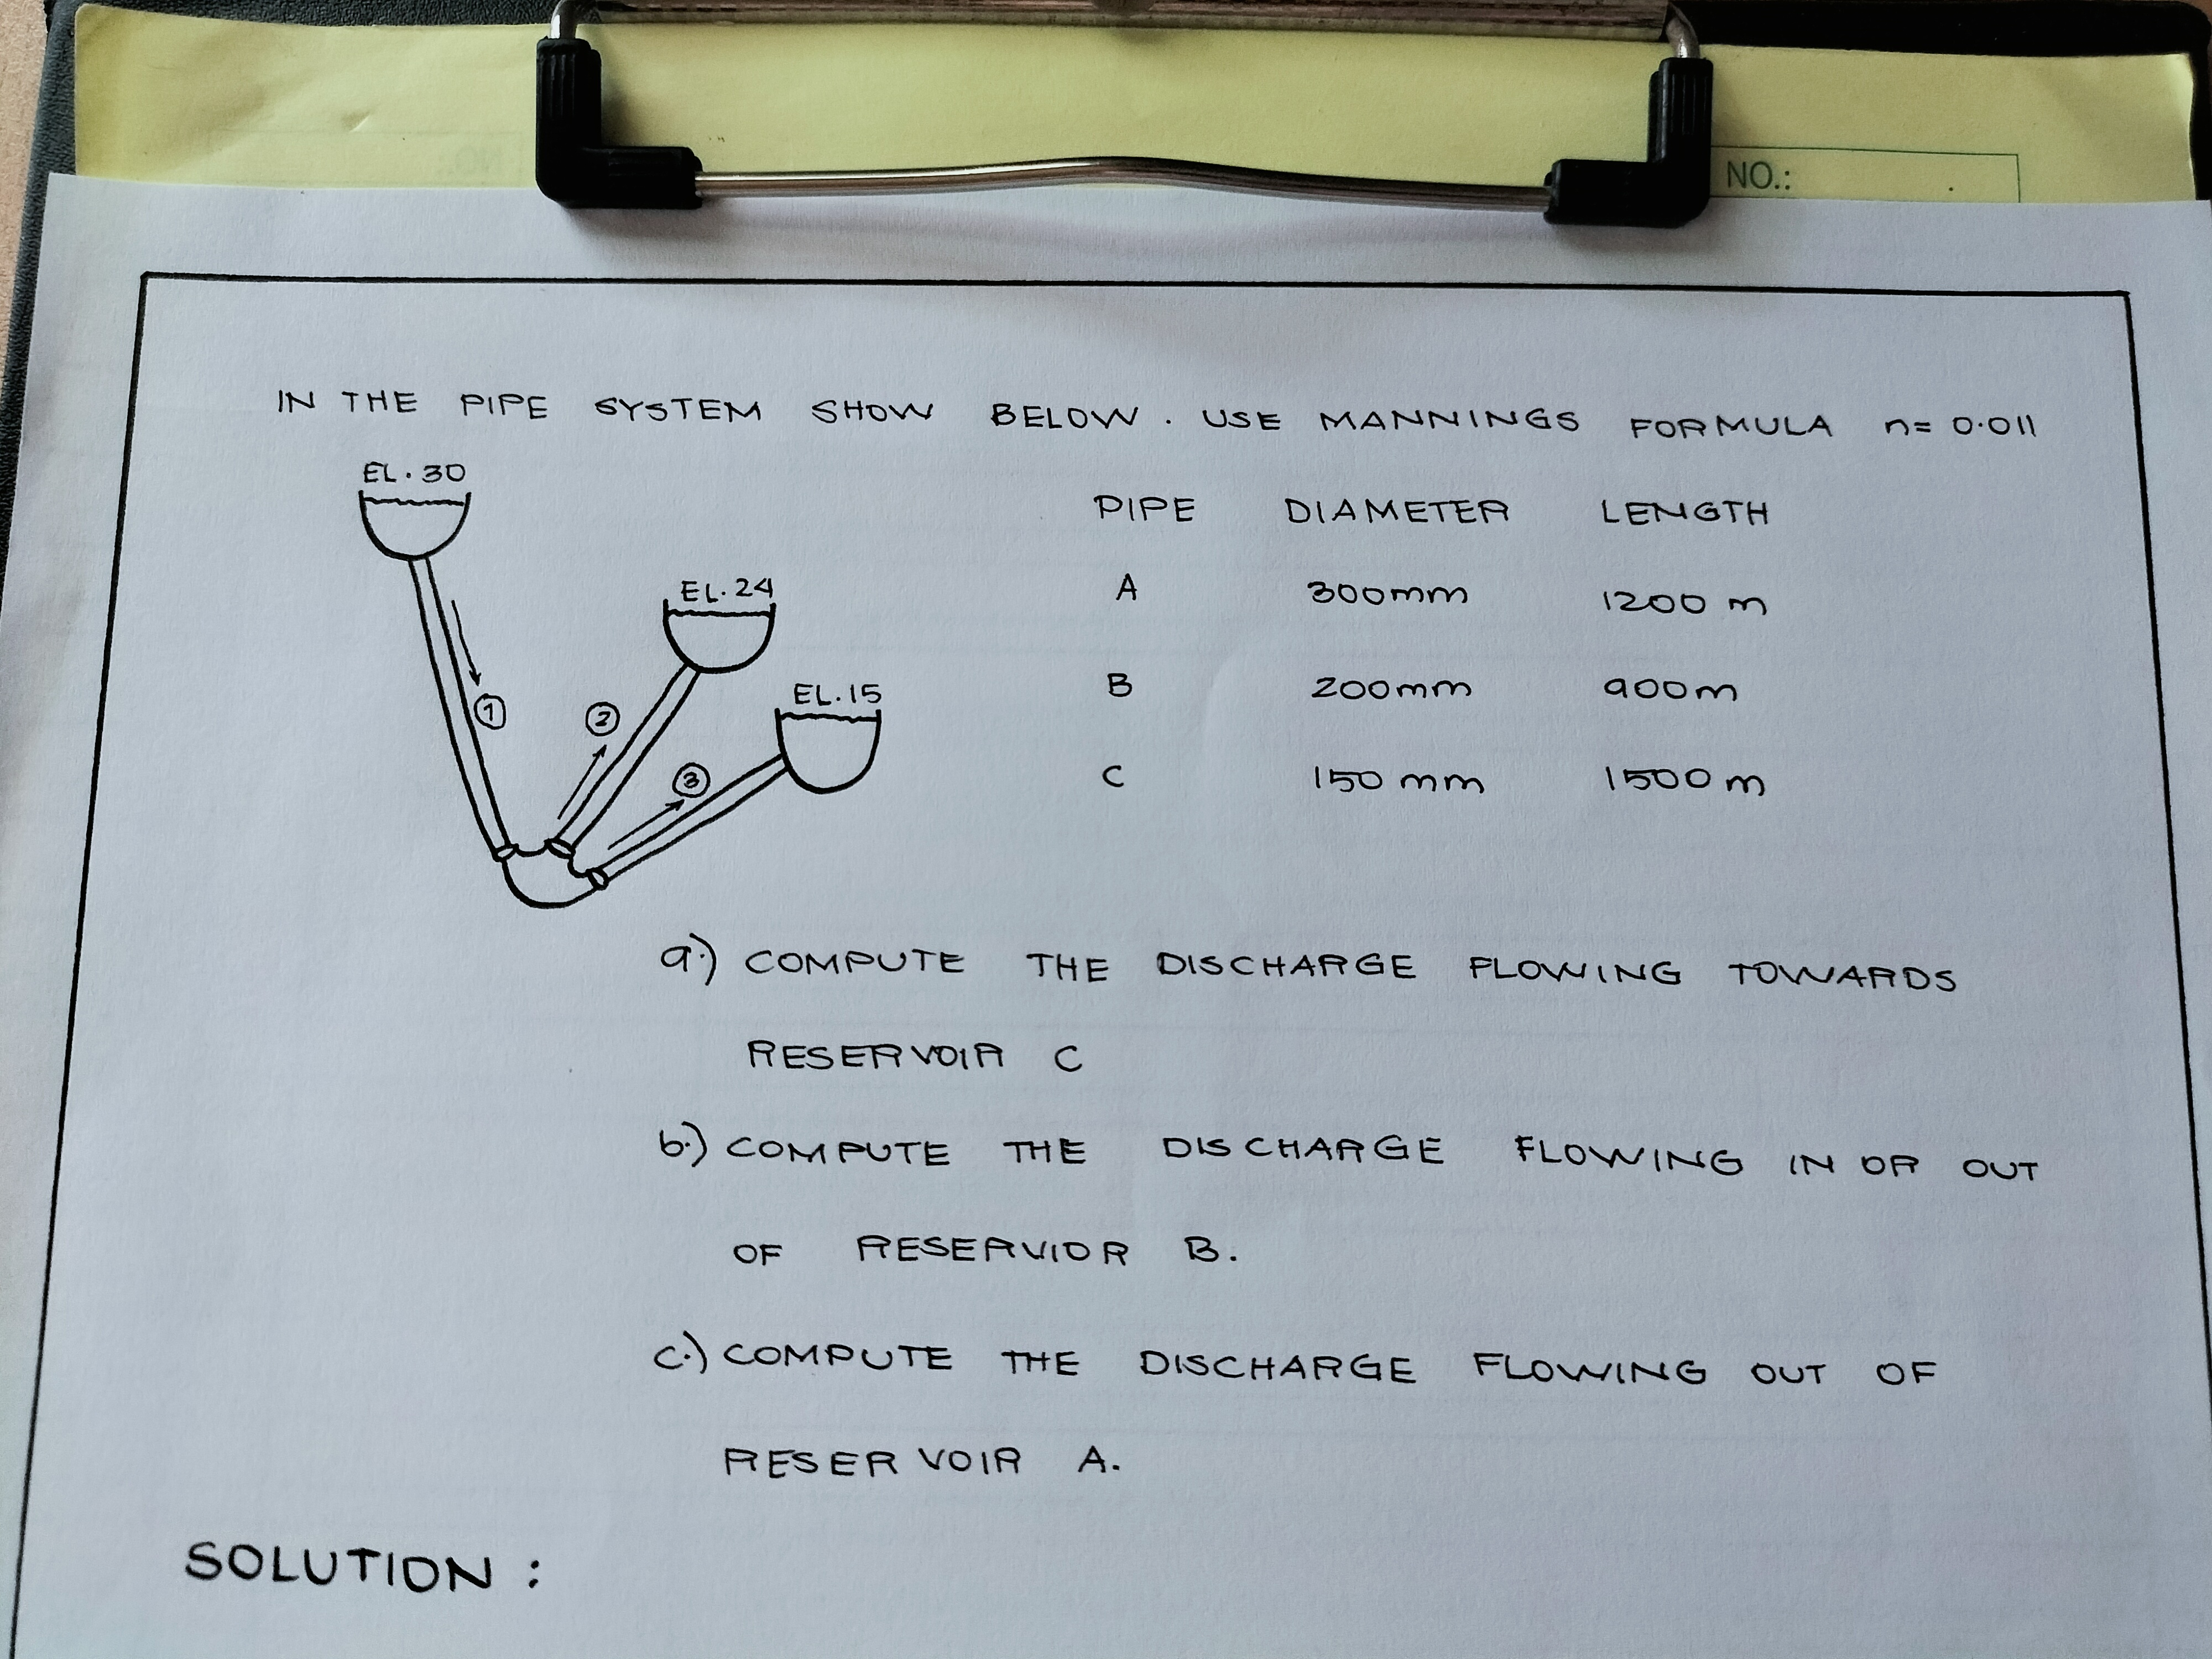 NO.:
IN THE PIPE SYSTEM SHOW BELOW. USE MANNINGS FORMULA n= 0.011
EL. 30
EL. 24
EL. 15
1
2
3
PIPE DIAMETER LENGTH
A 300mm 1200 m
B 200mm 900m
C 150 mm 1500 m
a.) COMPUTE THE DISCHARGE FLOWING TOWARDS
RESERVOIR C
b.) COMPUTE THE DISCHARGE FLOWING IN OR OUT
OF RESERVIOR B.
c.) COMPUTE THE DISCHARGE FLOWING OUT OF
RESERVOIR A.
SOLUTION :